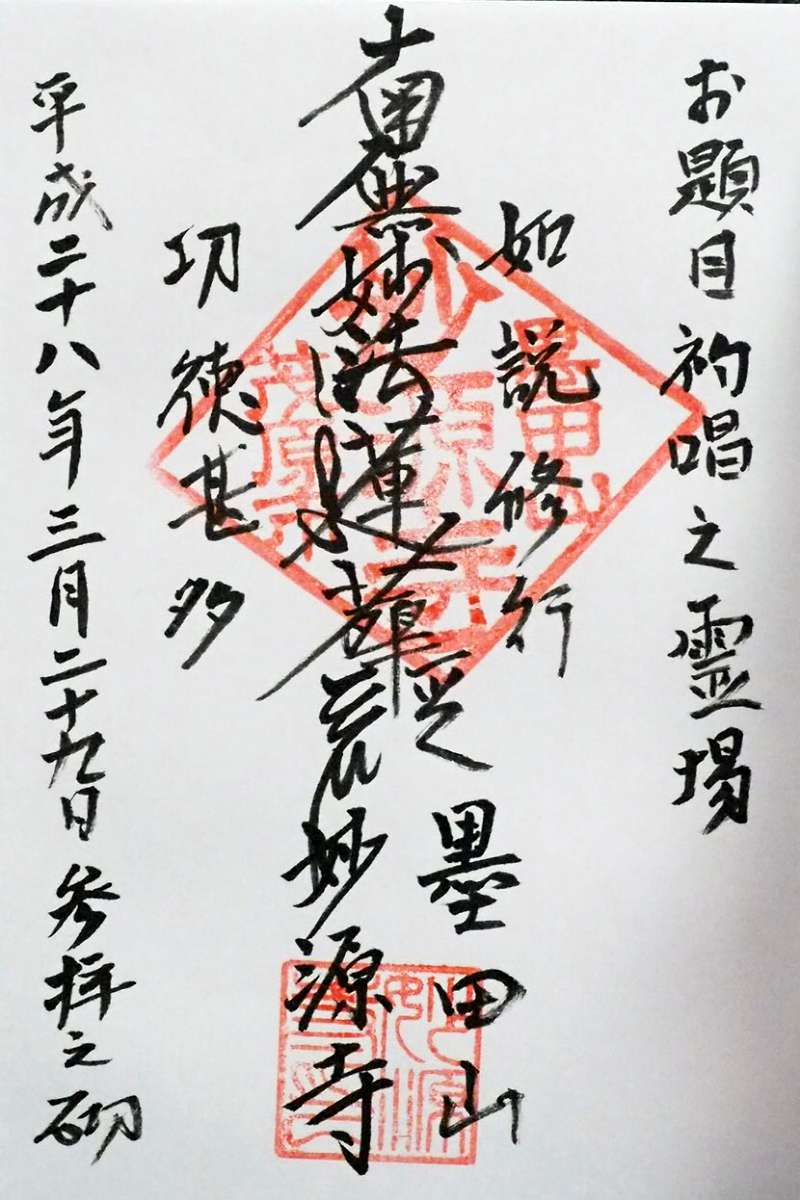 お題目初唱之霊場
如説修行
南無妙法蓮華経
墨田山
妙源寺
功徳甚多
平成二十八年三月二十九日 参拝之砌
墨田山
妙源寺
茂原市